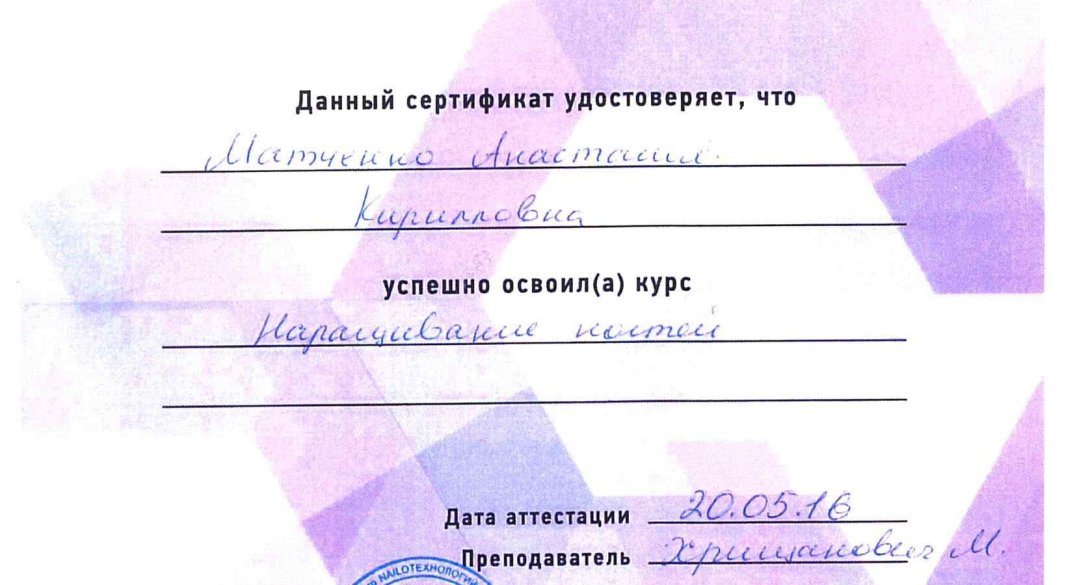 Данный сертификат удостоверяет, что
Матченко Анастасия
Кирилловна
успешно освоил(а) курс
Наращивание ногтей
Дата аттестации 20.05.16
Преподаватель Хрищанович М.
NAILОТЕХНОЛОГИЙ